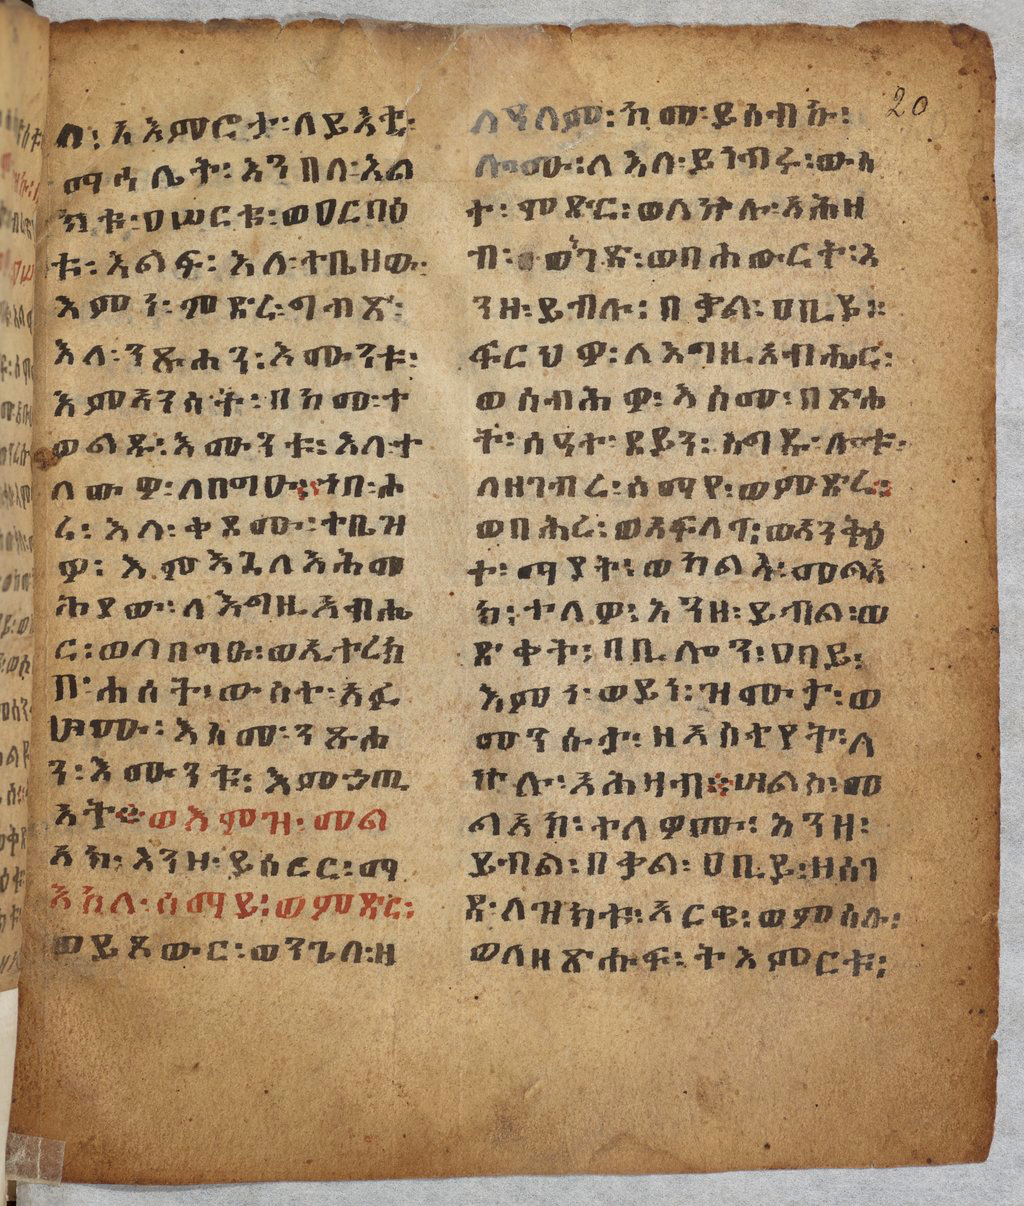 ለ፡ አእምሮታ፡ለይእቲ፡
ማሓሌት፡ እንበለ፡እል
ክቱ፡ዐሠርቱ፡ወዐርባዕ
ቱ፡ እልፍ፡ እለ፡ተቤዘው፡
እምነ፡ምድረ፡ግብጽ፡
እለ፡ንጹሐን፡እሙንቱ፡
እምአንስት፡በከመ፡ተ
ወልዱ፡እሙንቱ፡ እለ፡ተ
ለውዎ፡ለበግዑ፡ኀበ፡ሖ
ረ፡ እለ፡ቀደሙ፡ተቤዝ
ዎ፡ እምእጓለእሕመ
ሕያው፡ለእግዚአብሔ
ር፡ወለበግዑ፡ወኢተረክ
በ፡ሐሰት፡ውስተ፡አፉ
ሆሙ፡ እስመ፡ንጹሐ
ን፡እሙንቱ፡እምኃጢ
አት፡ወእምዝ፡መል
አክ፡እንዘ፡ይሰርር፡ማ
እከለ፡ሰማይ፡ወምድር፡
ወይጸውር፡ወንጌለ፡ዘ
20
ለዓለም፡ከመ፡ይስብኩ፡
ሎሙ፡ለእለ፡ይነብሩ፡ውስ
ተ፡ምድር፡ወለኵሉ፡አሕዘ
ብ፡ ወነገድ፡ወበሐውርት፡እ
ንዘ፡ይብሉ፡በቃል፡ዐቢይ፡
ፍርህዎ፡ለእግዚአብሔር፡
ወሰብሕዎ፡እስመ፡በጽሐ
ት፡ሰዓተ፡ደይን፡ስግዱ፡ሎቱ፡
ለዘገብረ፡ሰማየ፡ወምድረ፡
ወባሕረ፡ወአፍላገ፡ወአንቅዕ
ተ፡ማያት፡ወካልእ፡መልአ
ክ፡ተለዎ፡እንዘ፡ይብል፡ወ
ድቀት፡ባቢሎን፡ዐባይ፡
እምነ፡ወይነ፡ዝሙታ፡ወ
መንሱታ፡ዘአስተየት፡ለ
ኵሉ፡አሕዛብ፡ሣልስ፡መ
ልአክ፡ተለዎሙ፡እንዘ፡
ይብል፡በቃል፡ዐቢይ፡ዘሰገ
ደ፡ለዝክቱ፡አርዌ፡ወምስሉ፡
ወለዘጽሑፍ፡ትእምርቱ፡